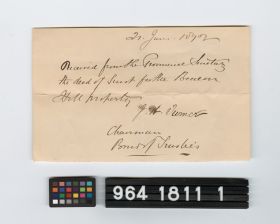 21 June 1892
Received from the Provincial Secretary
the deed of Trust for the Beacon
Hill property
Turner
Chairman
Board of Trustees
964 1811 1